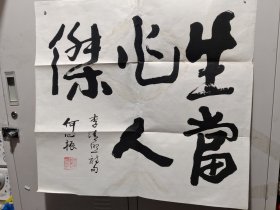 生當
作人
傑
李清照詩句
何心根